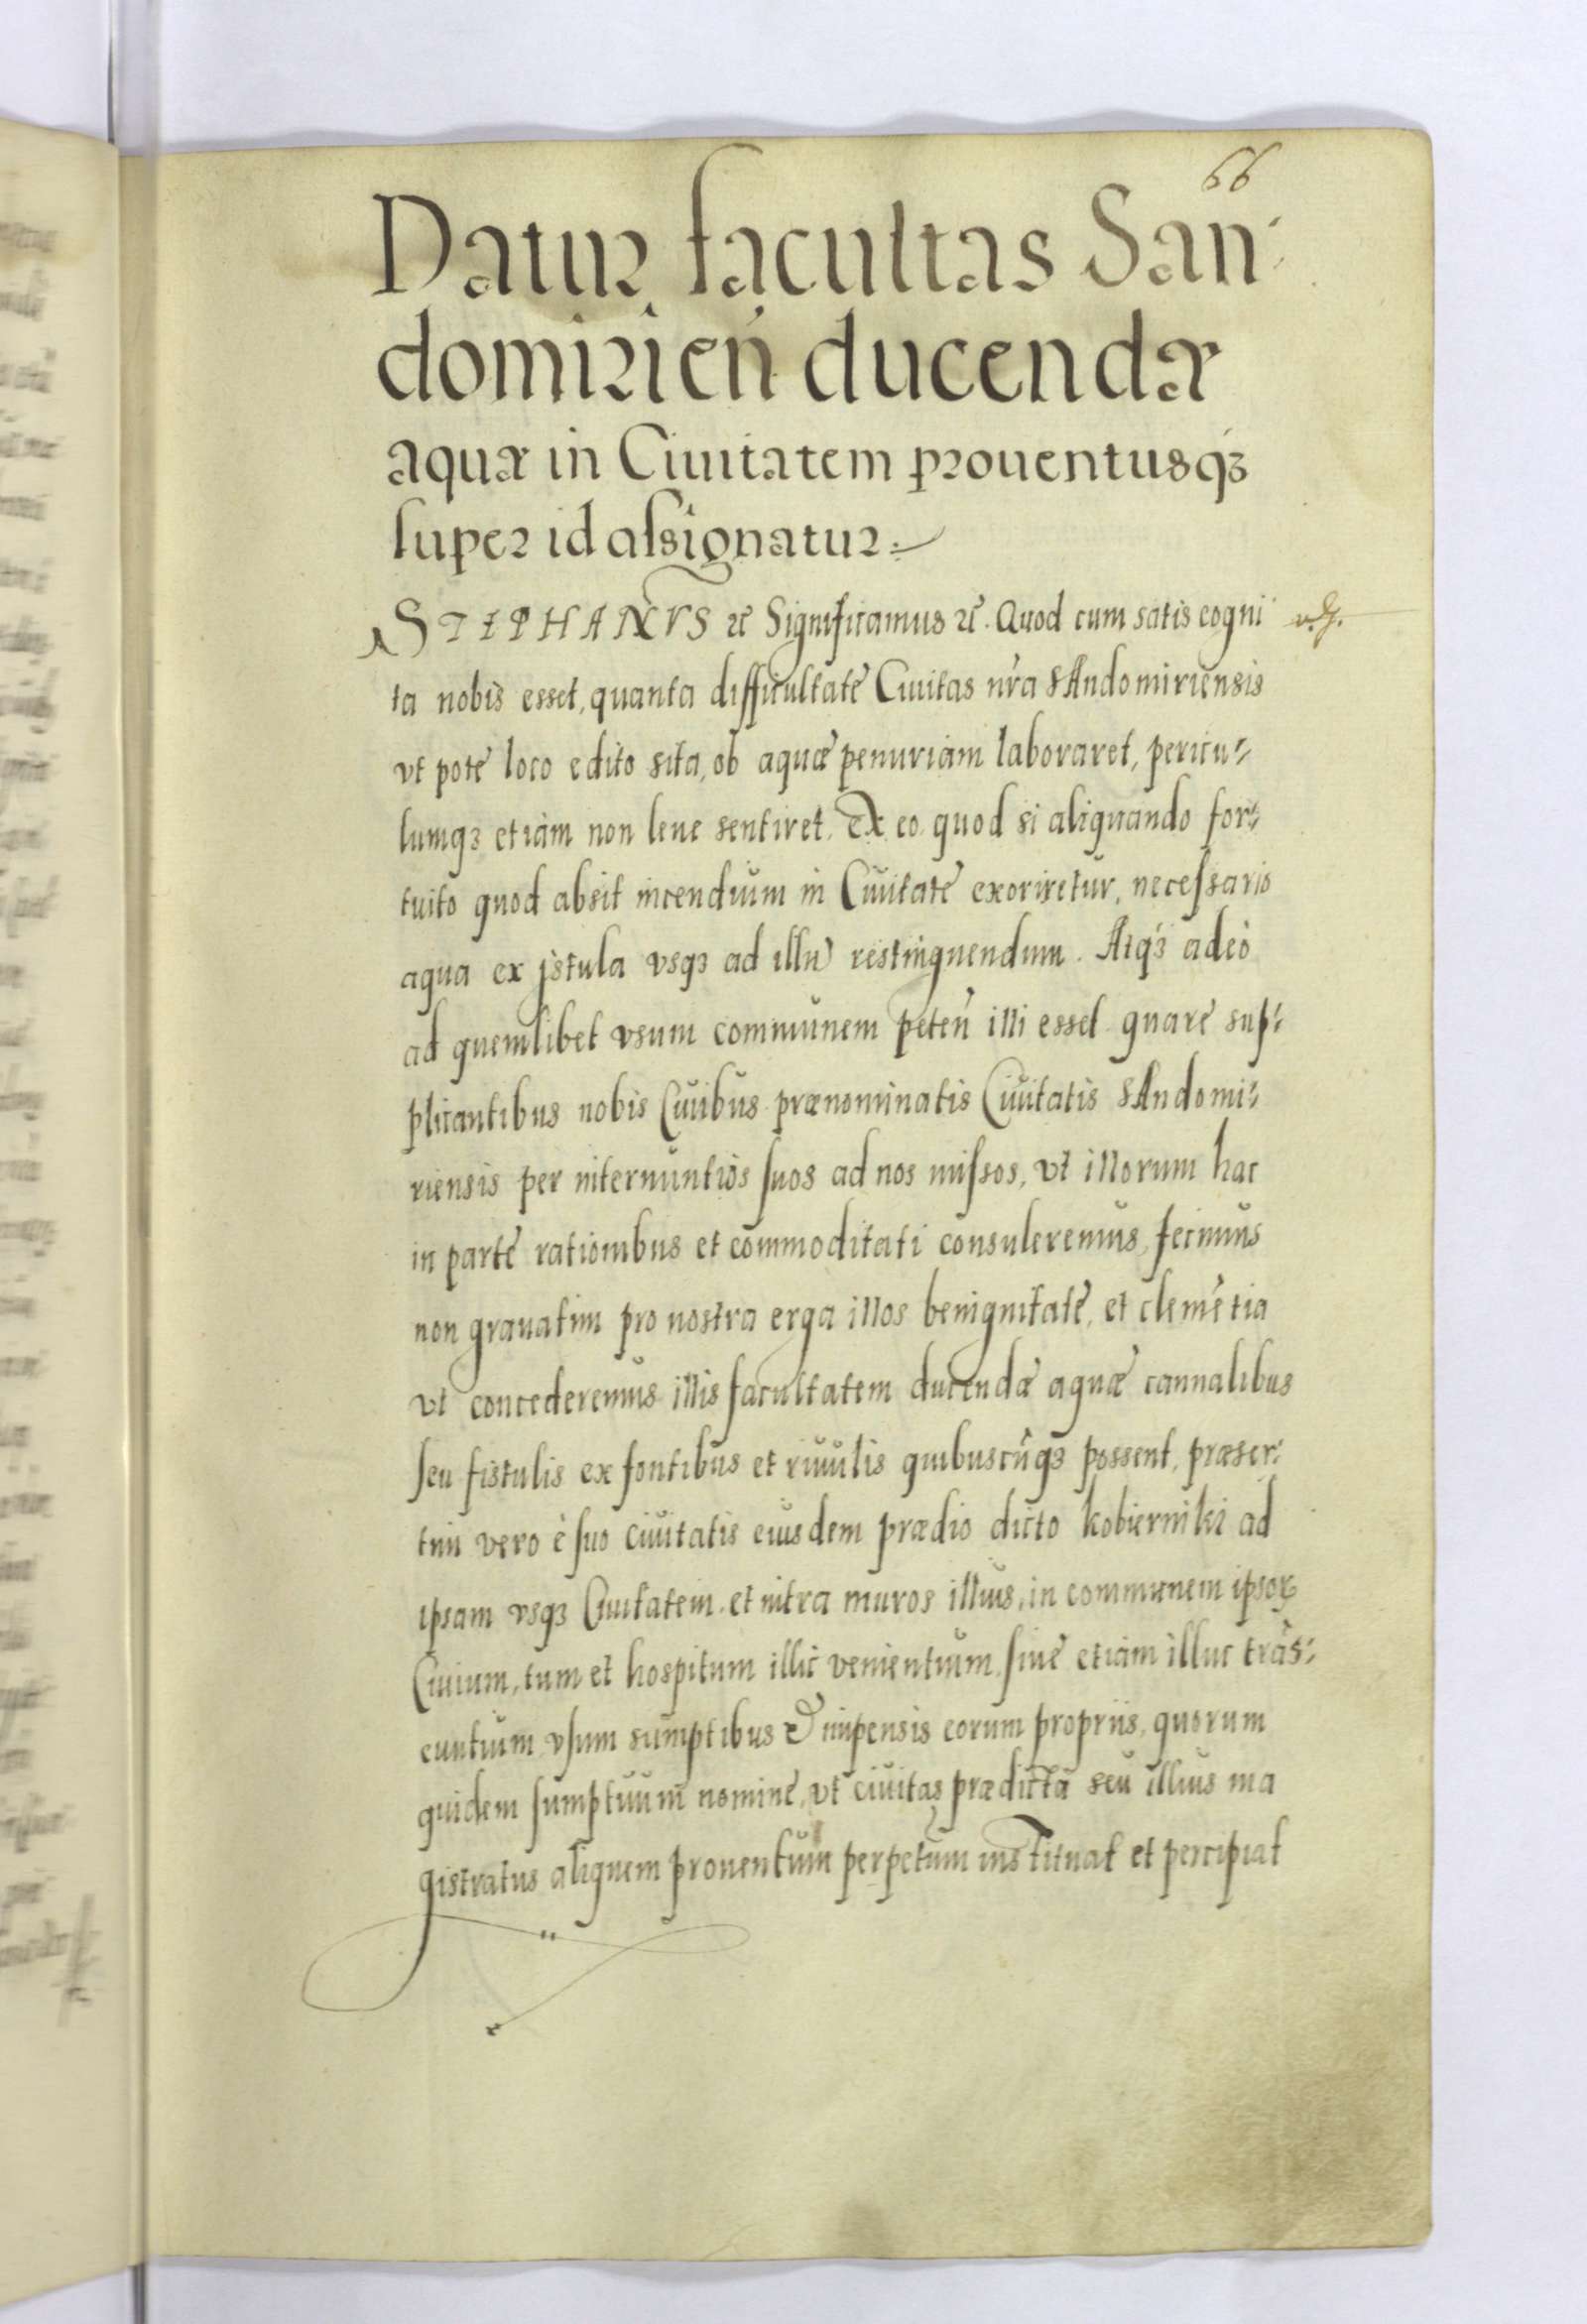 66
Datur facultas San-
domirien̄ ducendæ
aquæ in Ciuitatem prouentusq́ꝫ
super id assignatur
STEPHANVS ꝛc̄ Significamus ꝛc̄. Quod cum satis cogni
ta nobis esset, quanta difficultate Ciuitas nr̃a SAndomiriensis
vt pote loco edito sita, ob aquæ penuriam laboraret, pericu-
lumqꝫ etiam non leue sentiret. Ex eo quod si aliquando for-
tuito quod absit incendium in Ciuitate exoriretur, necessario
aqua ex jstula vsqꝫ ad illũ restinguendum. Atq́ꝫ adeo
ad quemlibet vsum communem peten̄ illi esset. quare sup-
plicantibus nobis Ciuibus prænominatis Ciuitatis SAndomi-
riensis per internuntios suos ad nos missos, vt illorum hac
in parte rationibus et commoditati consuleremus, fecimus
non grauatim pro nostra erga illos benignitate, et clemẽtia
vt concederemus illis facultatem ducendæ aquæ cannalibus
seu fistulis ex fontibus et riuulis quibuscũqꝫ possent, præser-
tim vero è suo ciuitatis eiusdem prædio dicto kobierniki ad
ipsam vsqꝫ Ciuitatem et intra muros illius, in communem ipsoꝝ
Ciuium, tum et hospitum illic venientium, siue etiam illuc trãs-
euntium vsum sumptibus & impensis eorum propriis, quorum
quidem sumptuum nomine, vt ciuitas prædicta seu illius ma
gistratus aliquem prouentum perpetuum instituat et percipiat